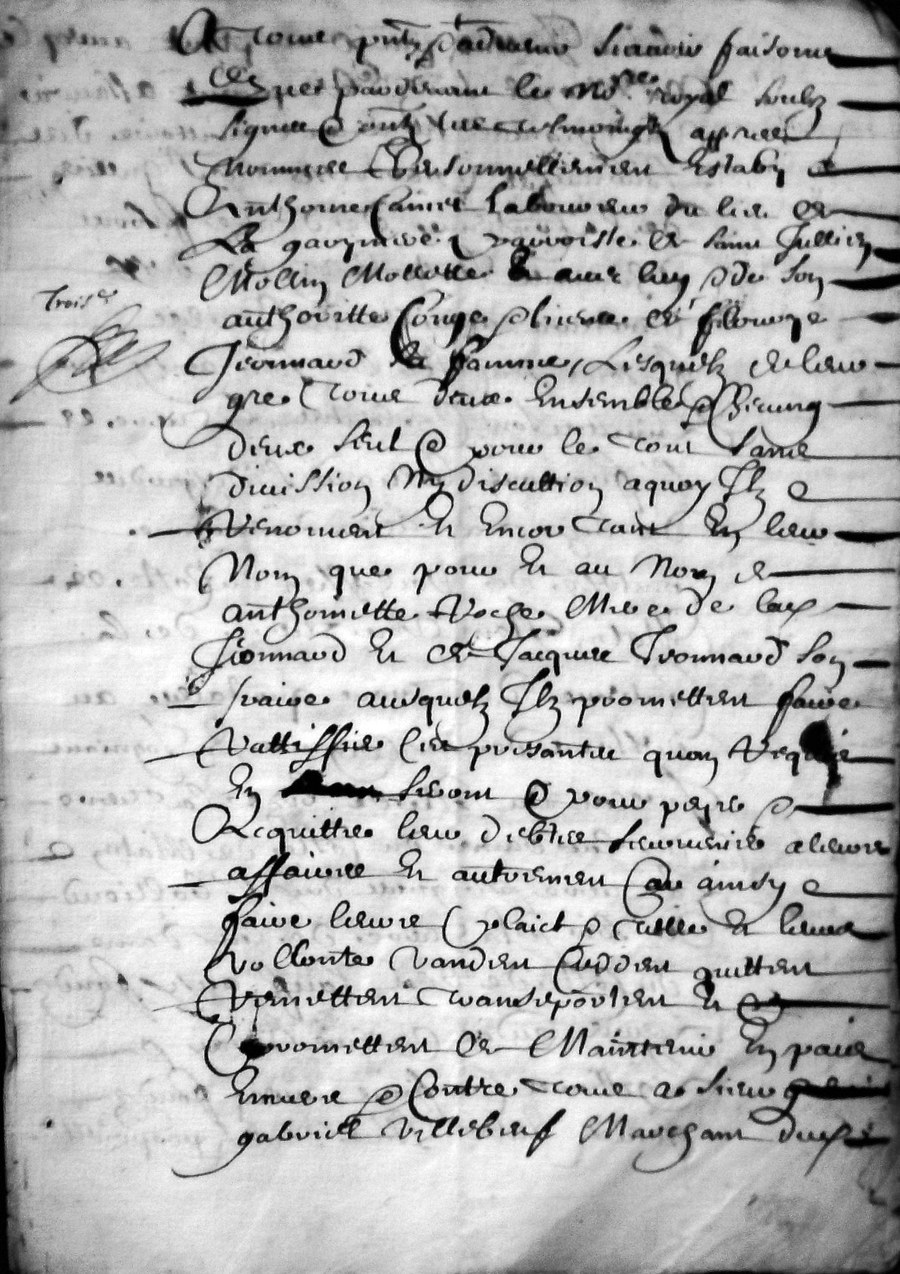 A tous pntz & advenir scavoir faisons
que pardevant le no.re royal soubz
signe & pntz les tesmoingz appres
nommes personnellement estably
Anthoine Camet laboureur du lieu de
La parroisse de sainct Jullien
Mollin Mollette & avec luy & de son
authoritte conge & licence de fleurye
Trois.e
Jeonnard sa famme, Lesquelz de leur
gre tous deux ensemble & chacung
deux seul & pour le tout sans
division ny discution a quoy Ilz
renoncent et encor tant en leur
Nom que pour et au Nom de
anthoinette Roche Mere de lad
Jeonnard et de Jacques Jeonnard son
fraire ausquelz Ilz promettent faire
rattiffier ces presantes quan requis
en seront & pour payer &
Acquitter leur debtes survenir a leurs
affaires et autrement car ainsy
faire leurs plaict & telle et leurs
vollonte vandent ceddent quittent
remettent transeportent et
promettent de Maintenir en paix
envers & contre tous a sieur
gabriel villebeuf Marchant dud